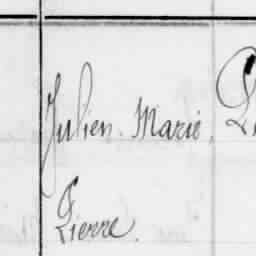 Julien Marie,
Pierre.